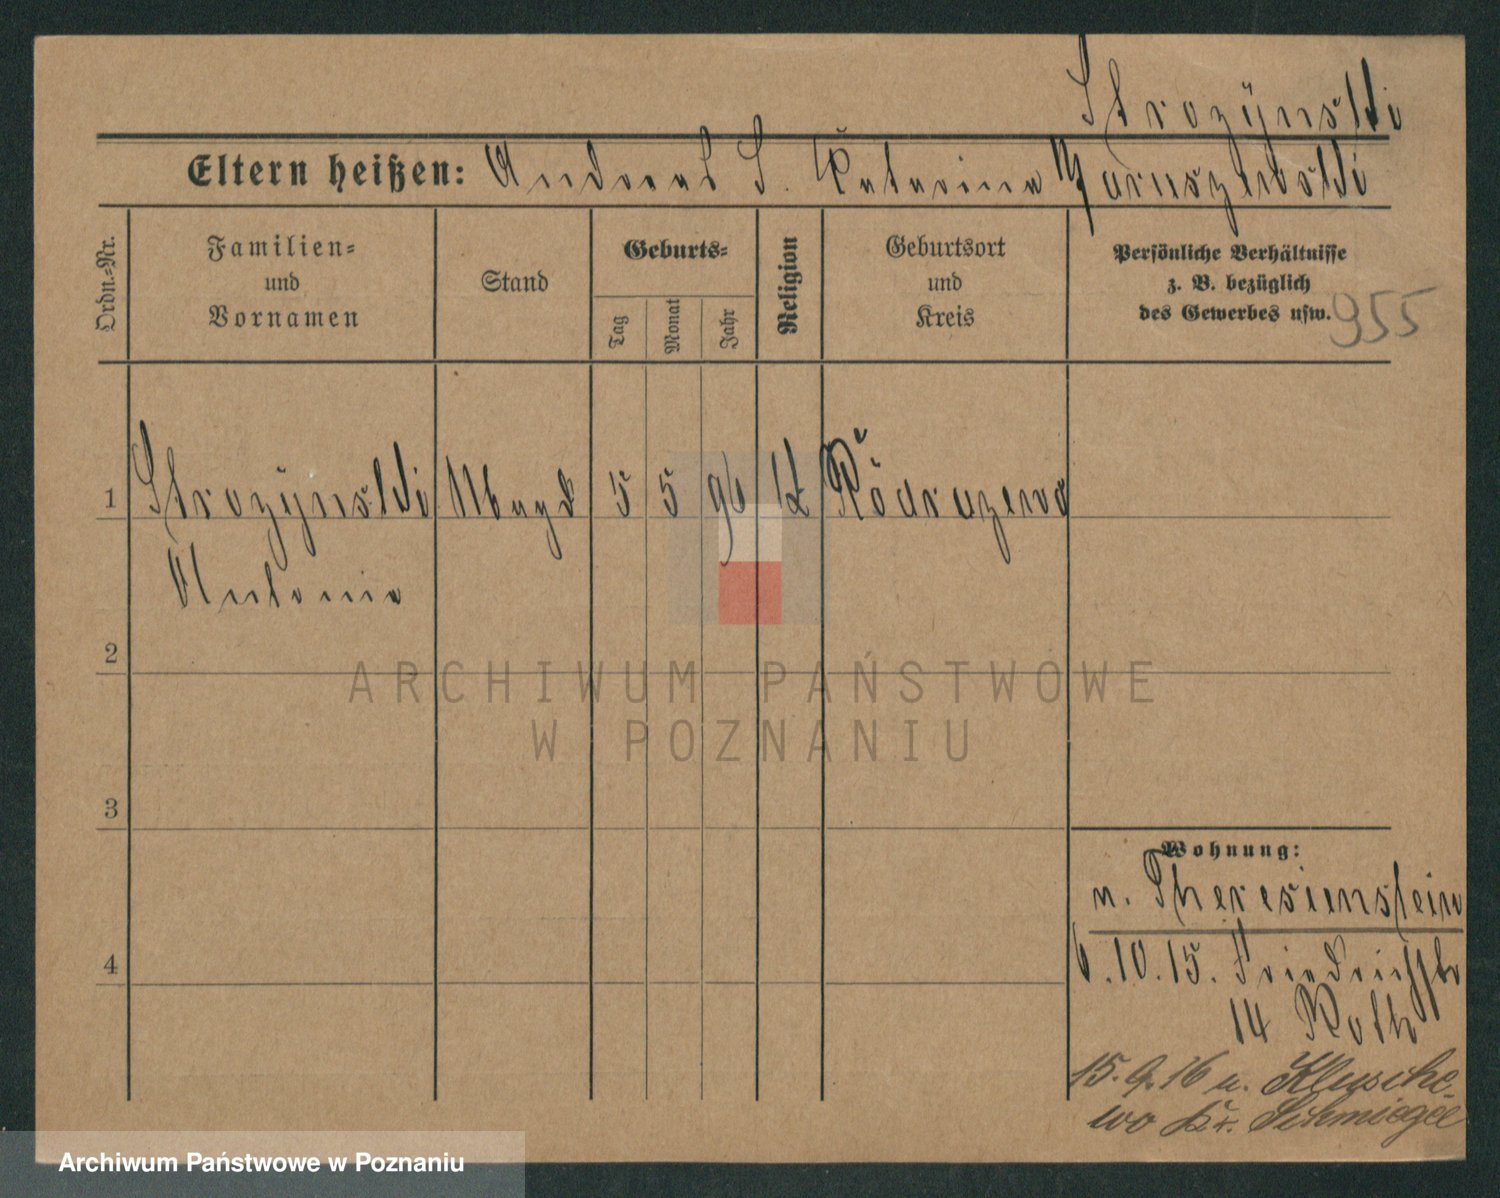 Strozÿnski
Eltern heißen: Andreas S. Katarina Jaruszewski
Ordn.-Nr.
Familien-
und
Vornamen
Stand
Geburts-
Tag
Monat
Jahr
Religion
Geburtsort
und
Kreis
Persönliche Verhältnisse
z. B. bezüglich
des Gewerbes usw.
955
1 Strozÿnski Magd 5 5 96 K
Antonie
2
3
4
Wohnung:
n. Theresienstein
6.10.15. Friedrichstr
14 Roth
15.9.16 n. Klusche-
wo Kr. Schmiegel
ARCHIWUM PAŃSTWOWE
W POZNANIU
Archiwum Państwowe w Poznaniu